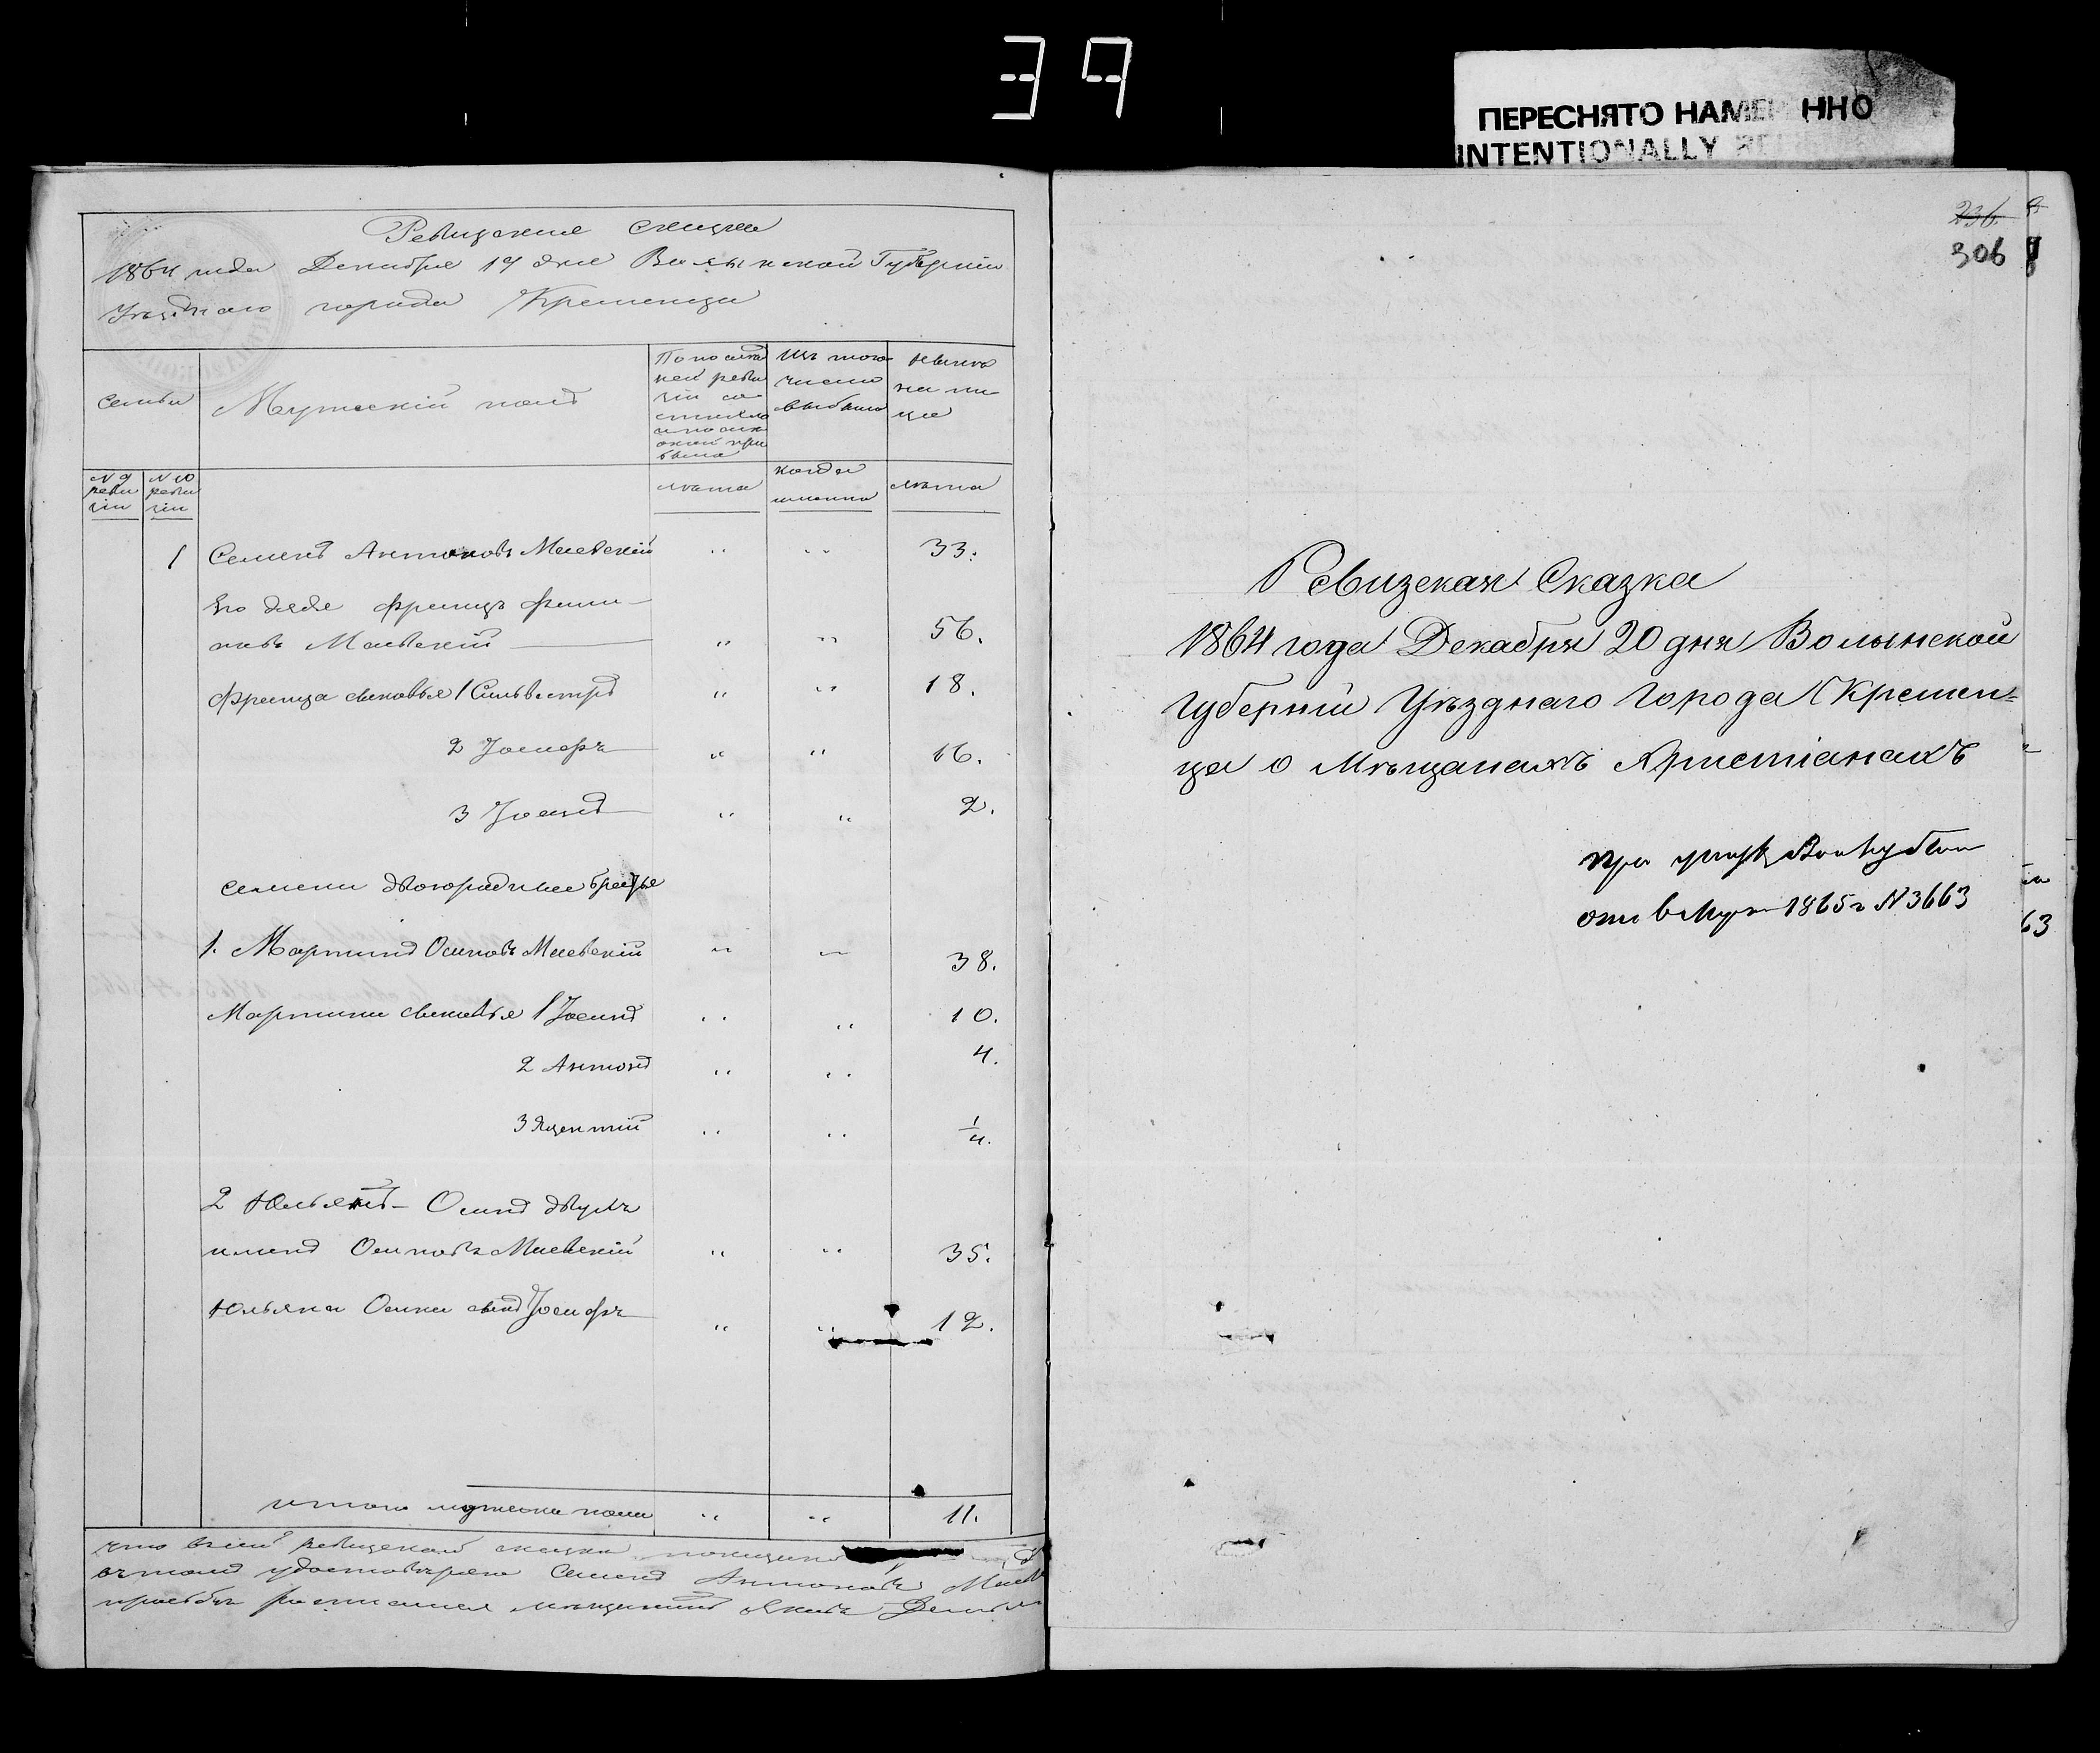 39
ПЕРЕСНЯТО НАМЕРЕННО
INTENTIONALLY
Ревизская сказка
1864 года Декабря 19 дня Волынской Губерніи
Уѣзднаго города Кременца
Семьи
Мужескій полъ
По послѣд
ней реви
зіи со
стояло
и послѣ
оной при
было
Изъ того
числа
выбыло
Нынѣ
на ли
цо
№ 9
реви
зіи
№ 10
реви
зіи
лѣта
когда
именно
лѣта
1 Семенъ Антоновъ Маевскій 33.
Его дядя Францъ
Маевскій 56.
Франца сыновья 1 Сильвестръ 18.
2 Іосифъ 16.
3 2.
Семена двоюродные братья
1. Мартинъ Осиповъ Маевскій 38.
Мартина сыновья 1 10.
2 Антонъ 4.
3 Яцентій 1/4.
2 Юльянъ - Осипъ двухъ
именъ Осиповъ Маевскій 35.
Юльяна Осипа сынъ Іосифъ 12.
итого мужеска пола 11.
что въ сей ревизской сказкѣ показано
въ томъ удостовѣряю Семенъ Антоновъ Маев
просьбѣ росписался мѣщанинъ
236.
306
Ревизская Сказка
1864 года Декабря 20 дня Волынской
Губерніи Уѣзднаго Города Кремен=
ца о Мѣщанахъ Христіанахъ
при
отъ 6 1865 г № 3663
63